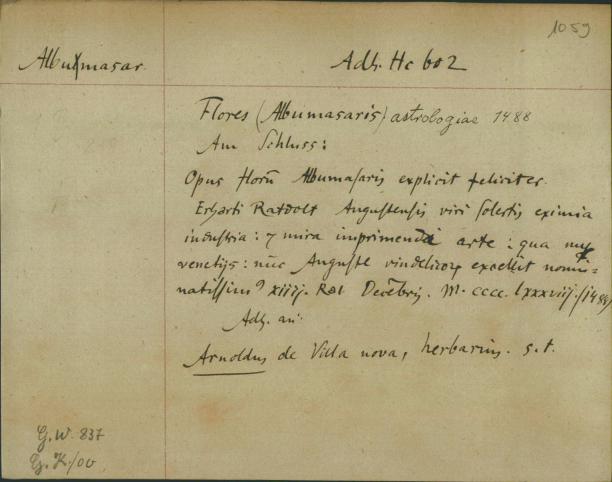 1059
Albumasar.
Adh. Hc 602
Flores (Albumasaris) astrologiae 1488
Am Schluss:
Opus florū Albumasaris explicit feliciter.
Erharti Ratdolt Augustensis viri solertis eximia
industria: ⁊ mira imprimendi arte: qua nup
venetijs: nūc Auguste vindelicoꝝ excellit nomi=
natissimꝰ xiiij. Kal Decēbris. M. cccc. lxxxviij. (1488)
Adh. an:
Arnoldus de Villa nova, herbarius. s. t.
G. W. 837
G. K./00